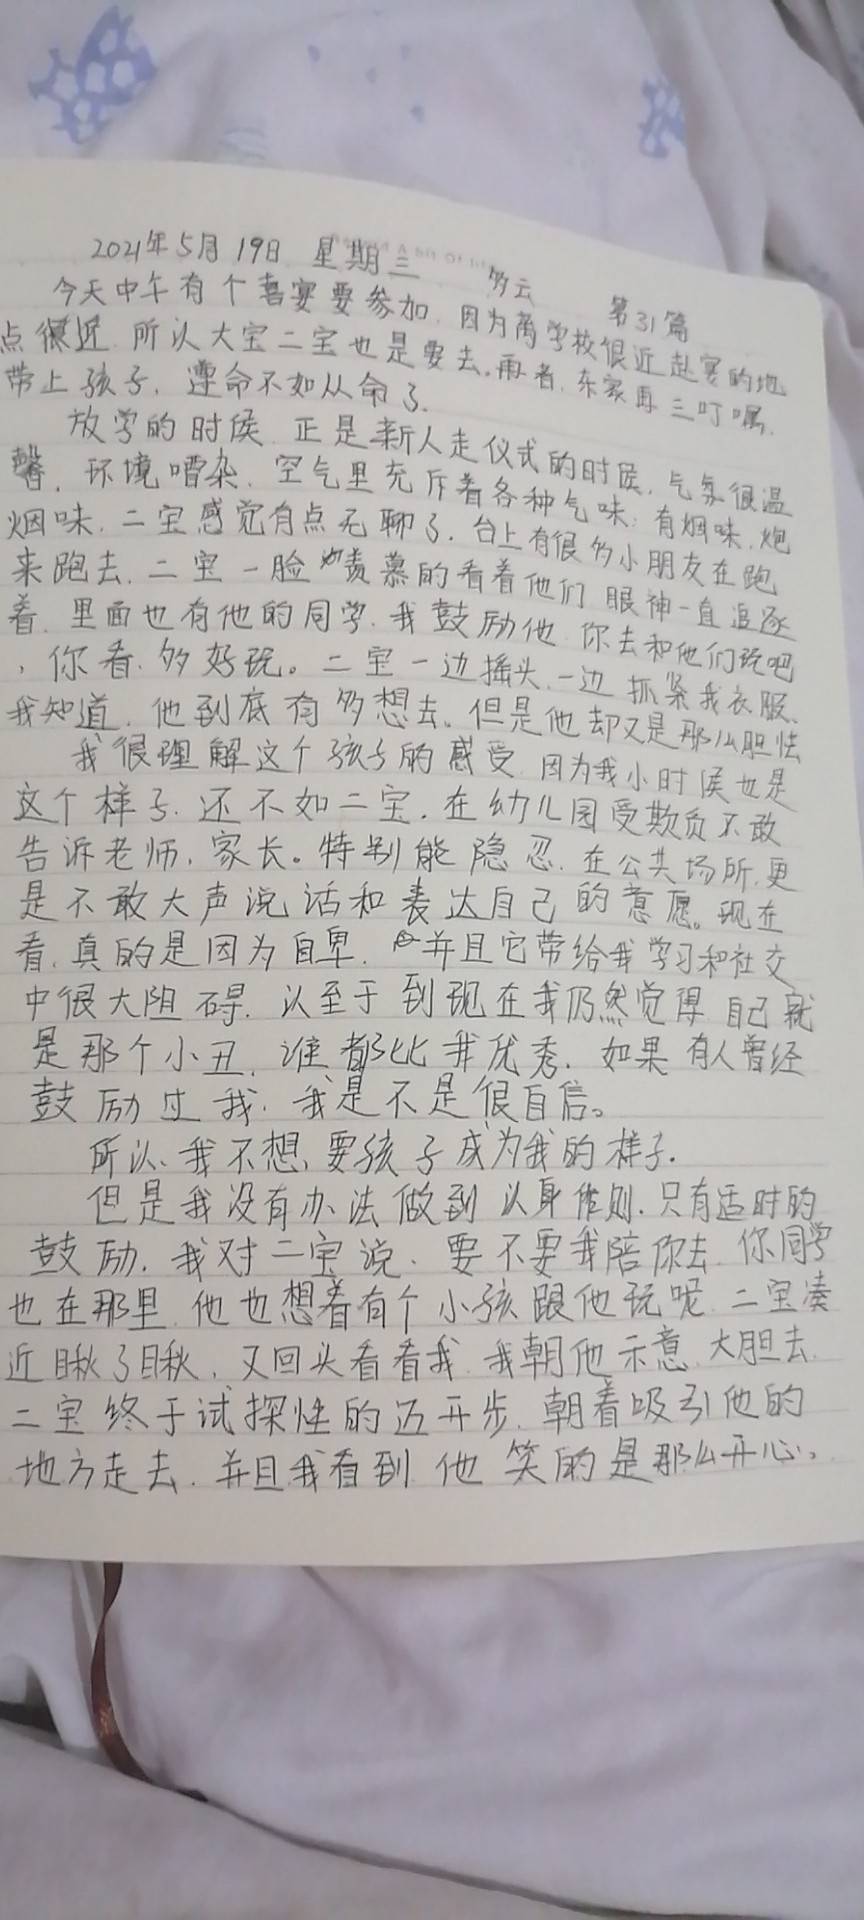 2021年5月19日 星期三 多云 第31篇
今天中午有个喜宴要参加.因为离学校很近赴宴的地
点很近.所以大宝二宝也是要去.再者.东家再三叮嘱.
带上孩子.遵命不如从命了.
放学的时候.正是新人走仪式的时候.气氛很温
馨.环境嘈杂.空气里充斥着各种气味:有烟味.炮
烟味.二宝感觉有点无聊了.台上有很多小朋友在跑
来跑去.二宝一脸羡慕的看着他们 眼神一直追逐
着.里面也有他的同学.我鼓励他 你去和他们玩吧
,你看.多好玩。二宝一边摇头.一边 抓紧我衣服.
我知道.他到底有多想去.但是他却又是那么胆怯
我很理解这个孩子的感受.因为我小时候也是
这个样子.还不如二宝.在幼儿园受欺负不敢
告诉老师.家长。特别能隐忍.在公共场所.更
是不敢大声说话和表达自己的意愿。现在
看.真的是因为自卑.并且它带给我学习和社交
中很大阻碍.以至于到现在我仍然觉得自己就
是那个小丑.谁都比我优秀.如果有人曾经
鼓励过我.我是不是很自信。
所以、我不想、要孩子成为我的样子.
但是我没有办法做到以身作则.只有适时的
鼓励.我对二宝说.要不要我陪你去.你同学
也在那里.他也想着有个小孩跟他玩呢.二宝凑
近瞅了瞅.又回头看看我.我朝他示意.大胆去.
二宝终于试探性的迈开步.朝着吸引他的
地方走去.并且我看到他笑的是那么开心。